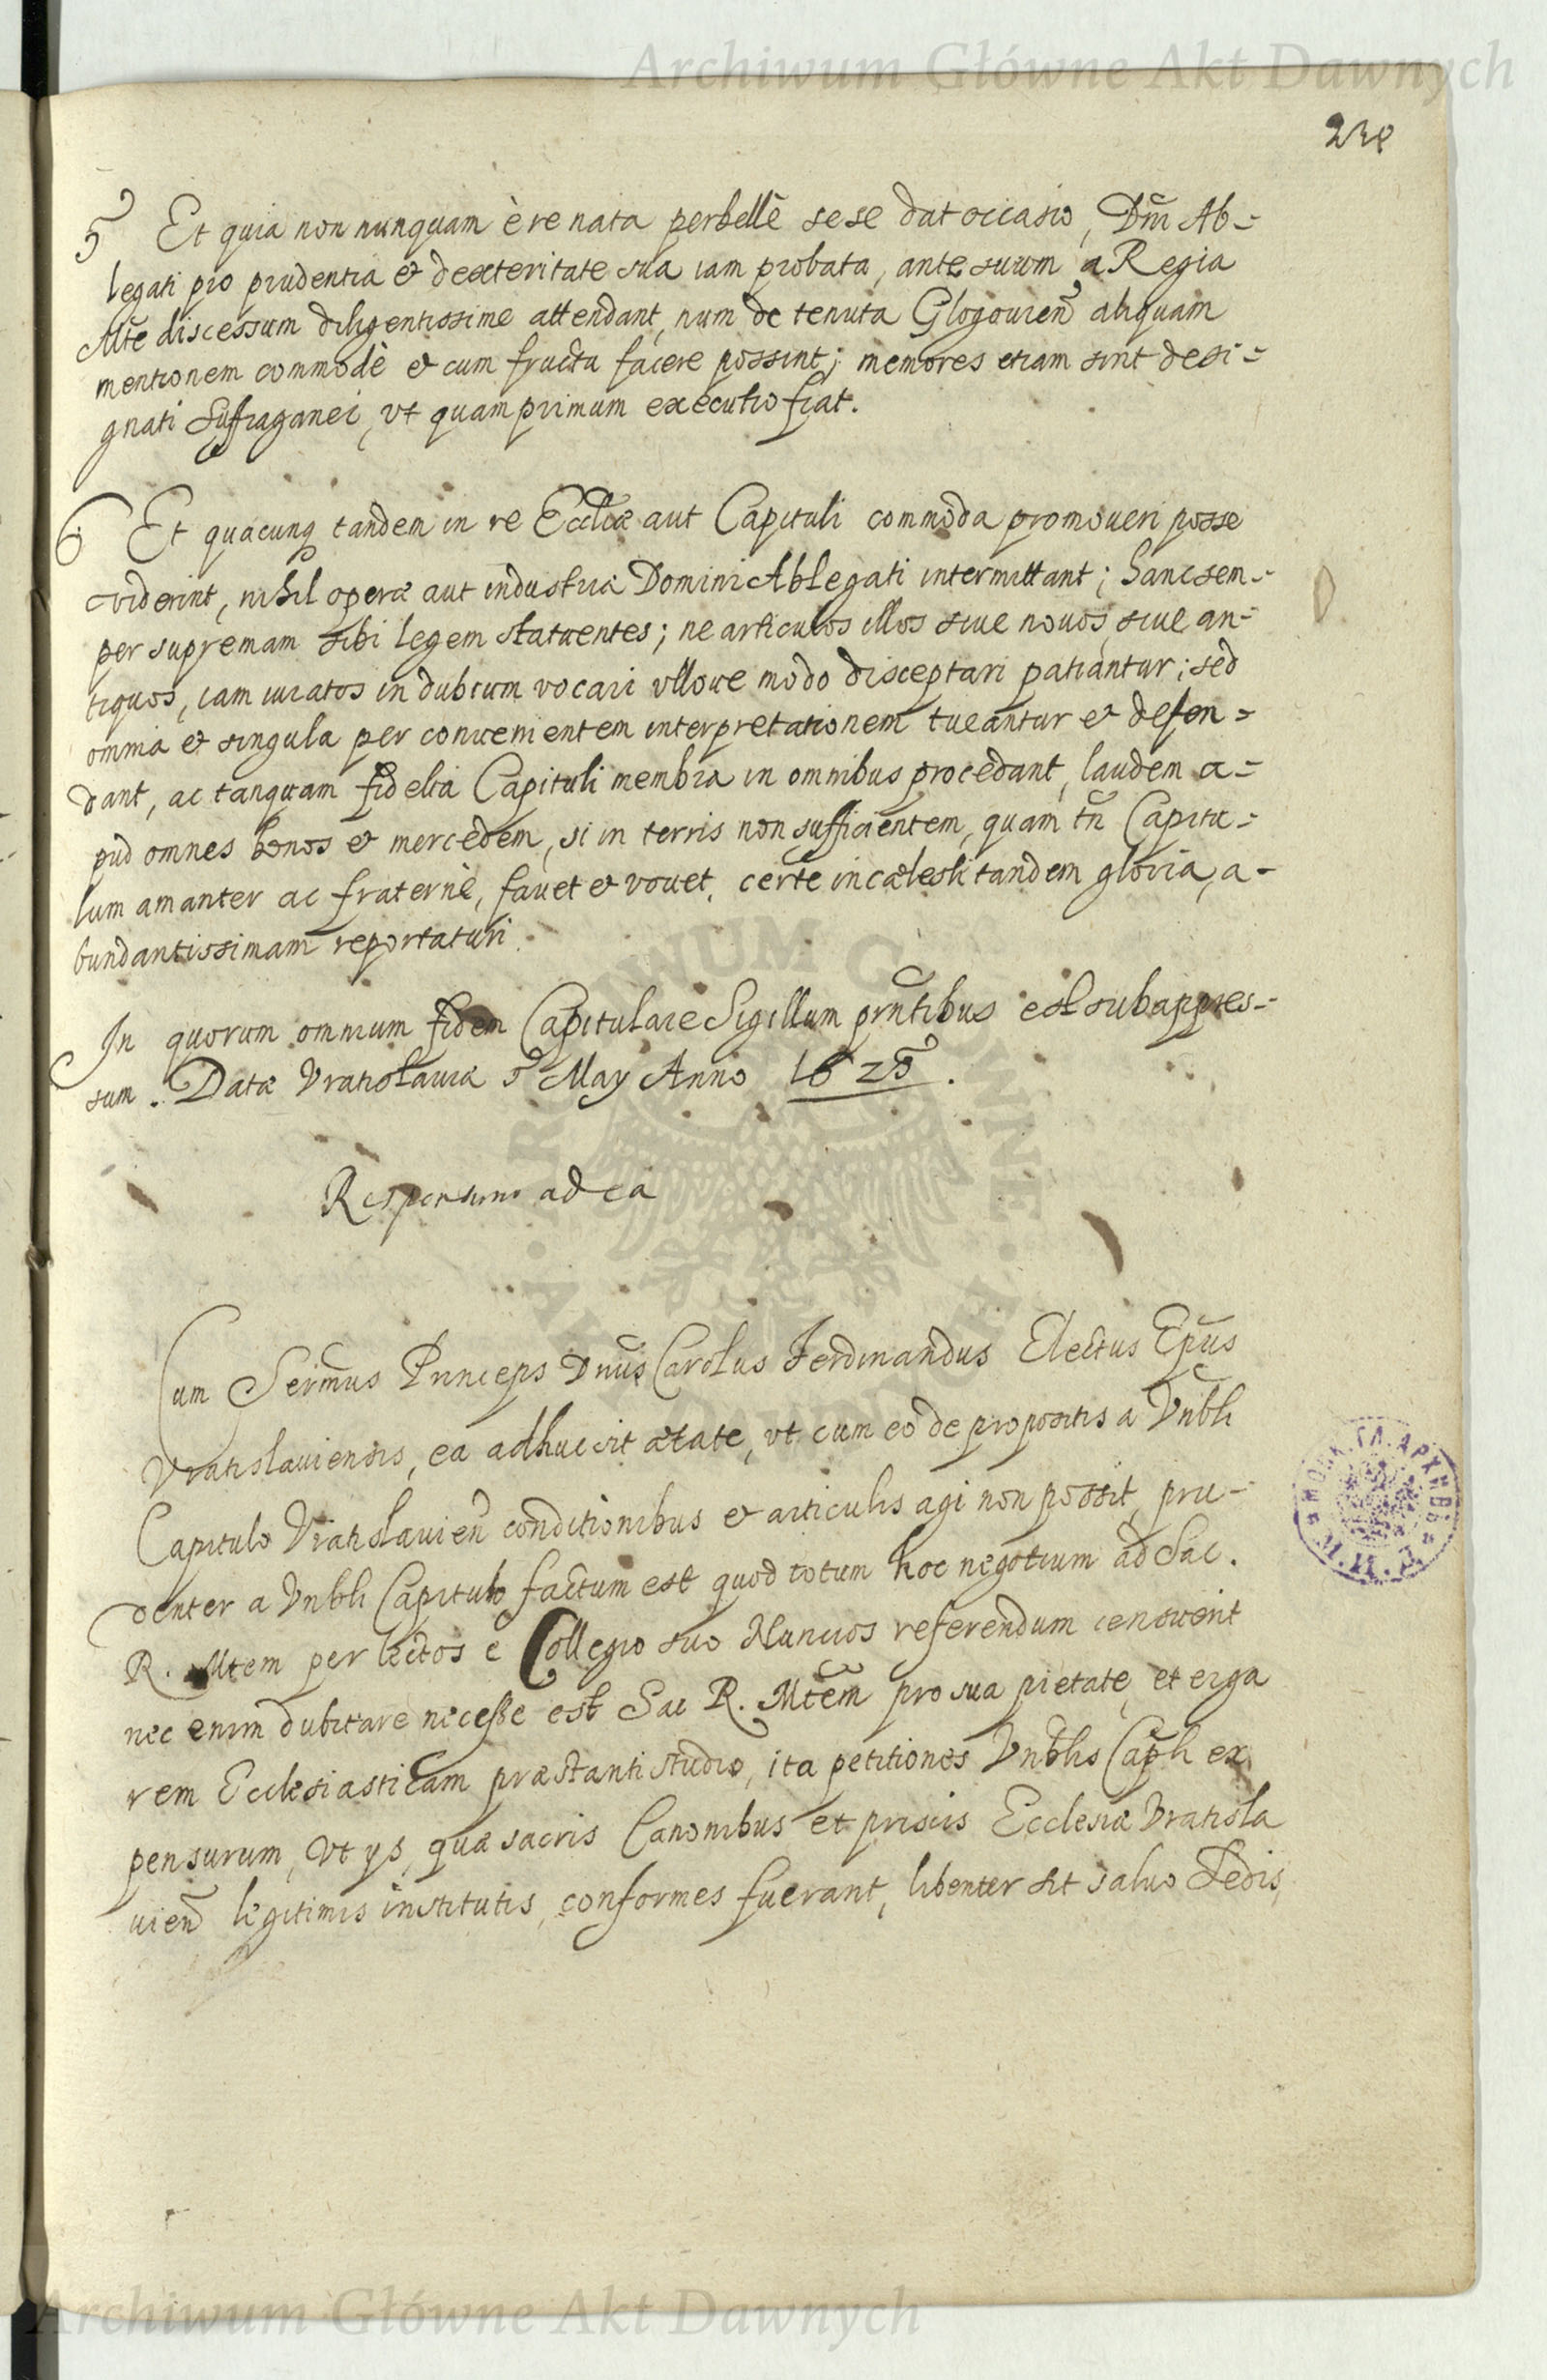 Archiwum Główne Akt Dawnych
5 Et quia non nunquam è re nata perbellè sese dat occasio, Dm̃ Ab-
legati pro prudentia & dexteritate sua iam probata, ante suum a Regia
Mte discessum diligentissime attendant, num de tenuta Glogouien̄ aliquam
mentionem commodè & cum fructu facere possint; memores etiam sint desi-
gnati Suffraganei, vt quamprimum executio fiat.
6 Et quacunq tandem in re Eccliæ aut Capituli commoda promoueri posse
viderint, nihil operæ aut industriæ Domini Ablegati intermittant; hanc sem-
per supremam sibi legem statuentes; ne articulos illos siue nouos siue an-
tiquos, iam iuratos in dubium vocari vlloue modo disceptari patiantur; sed
omnia & singula per conuenientem interpretationem tueantur & defen-
dant, ac tanquam fidelia Capituli membra in omnibus procedant, laudem a-
pud omnes bonos & mercedem, si in terris non sufficientem, quam tñ Capitu-
lum amanter ac fraternè, fauet & vouet, certe in cælesti tandem gloria, a-
bundantissimam reportaturi.
In quorum omnium fidem Capitulare Sigillum prñtibus est subappres-
sum. Datæ Vratislauiæ 5 May Anno 1625.
Responsum ad ea
Cum Sermũs Princeps Dnũs Carolus Ferdinandus Electus Epũs
Vratislauiensis, ea adhuc sit ætate, vt cum eo de propositis a Vnbli
Capitulo Vratislauien̄ conditionibus & articulis agi non possit, pru-
denter a Vnbli Capitulo factum est quod totum hoc negotium ad Sac.
R. Mtem per lectos e Collegio suo Nuncios referendum censuerit
nec enim dubitare necesse est Sac R. Mtẽm pro sua pietate, et erga
rem Ecclesiasticam præstanti studio, ita petitiones Vnblis Capli ex
pensurum, Vt ys, quæ sacris Canonibus et priscis Ecclesiæ Vratisla
uien̄ legitimis institutis, conformes fuerant, libenter sit saluo Sedis
Archiwum Główne Akt Dawnych